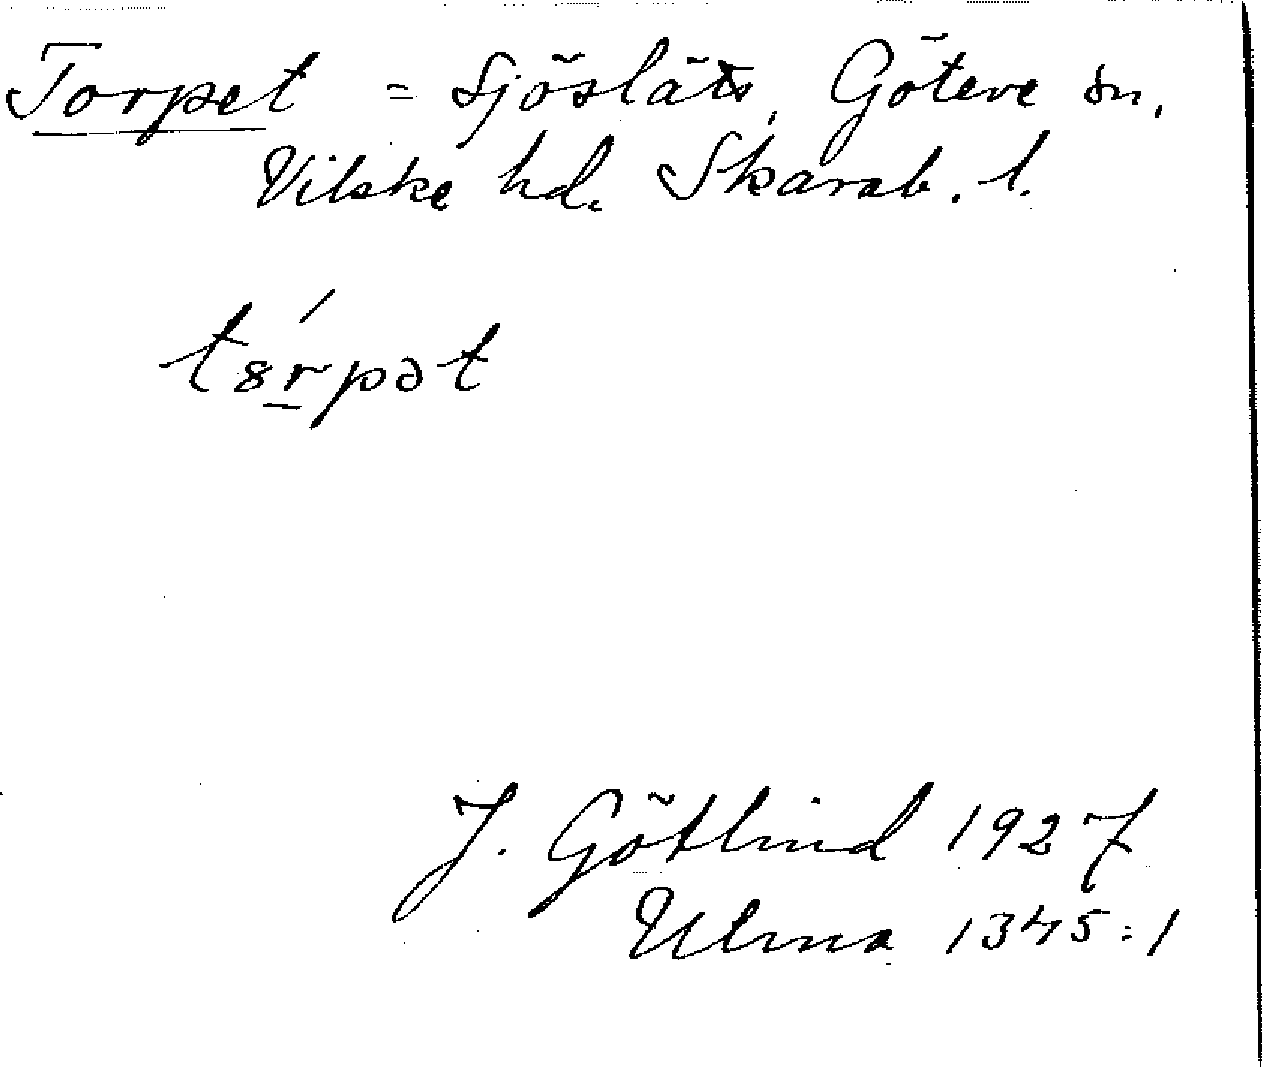 Torpet = Sjöslätt, Göteve sn.
Vilske hd. Skarab. l.
tȣ́rpət
J. Götlind 1927
Ulma 1345:1